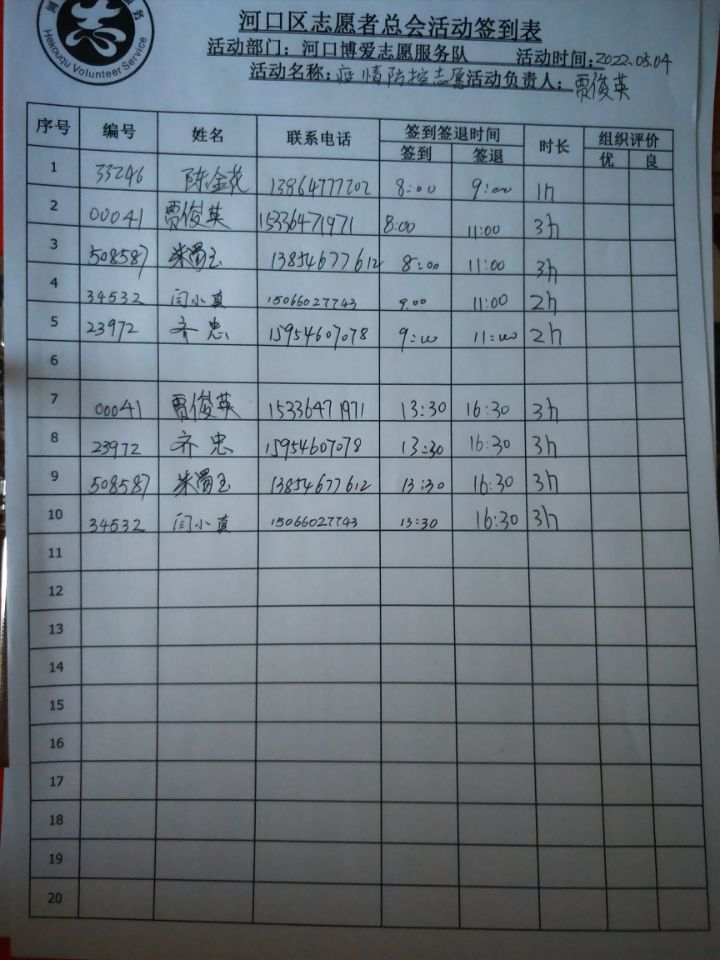 志
Hekouqu Volunteer Service
河口区志愿者总会活动签到表
活动部门：河口博爱志愿服务队 活动时间：2022.05.04
活动名称：疫情防控志愿活动负责人：贾俊英
序号 编号 姓名 联系电话 签到签退时间 时长 组织评价
签到 签退 优 良
1 33246 陈金花 13864777202 8:00 9:00 1h
2 00041 贾俊英 15336471971 8:00 11:00 3h
3 508587 朱蜀玉 13854677612 8:00 11:00 3h
4 34532 闫小真 15066027743 9:00 11:00 2h
5 23972 齐忠 15954607078 9:00 11:00 2h
6
7 00041 贾俊英 15336471971 13:30 16:30 3h
8 23972 齐忠 15954607078 13:30 16:30 3h
9 508587 朱蜀玉 13854677612 13:30 16:30 3h
10 34532 闫小真 15066027743 13:30 16:30 3h
11
12
13
14
15
16
17
18
19
20